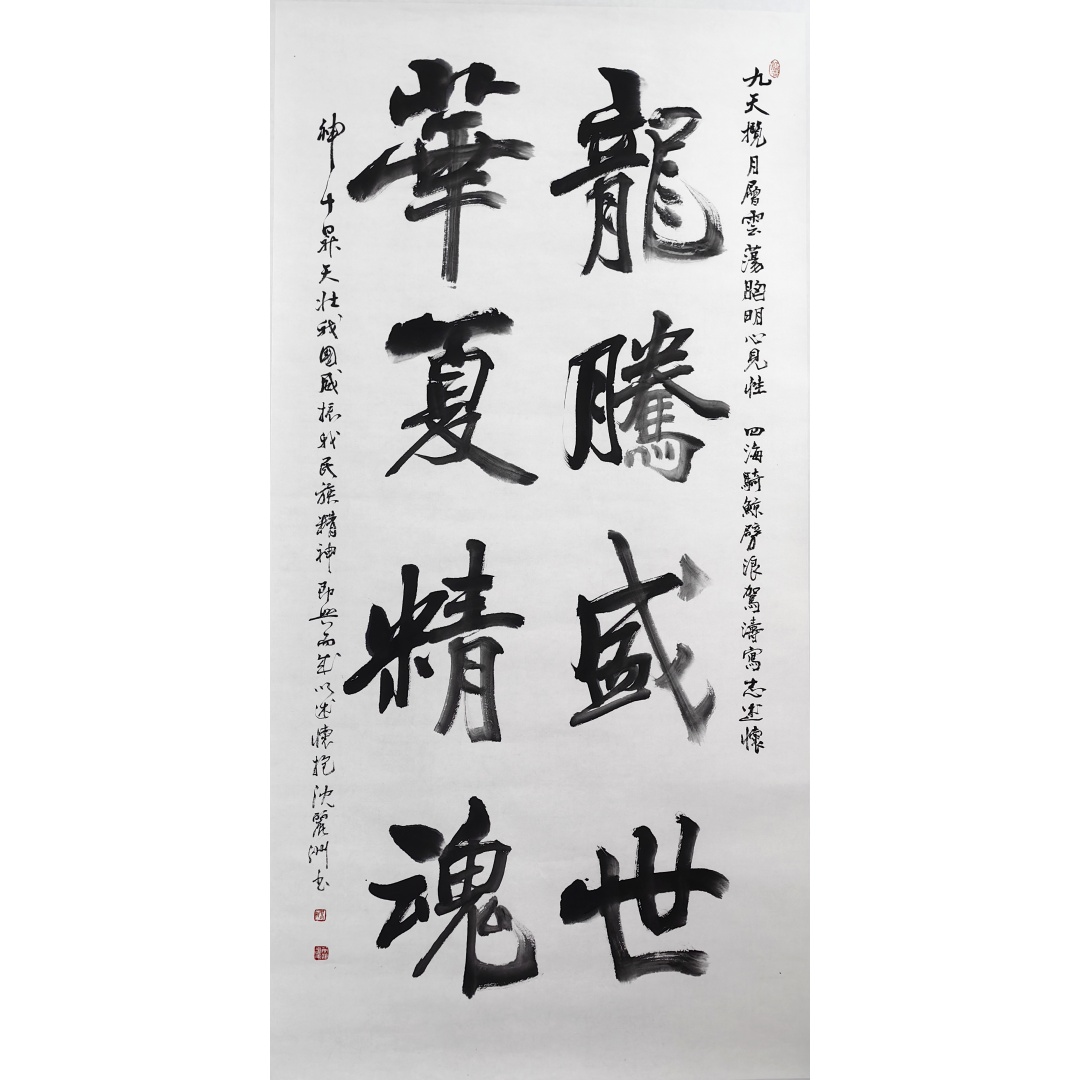 九天攬月層雲蕩胸明心見性 四海騎鯨劈浪駕濤寫志述懷
龍騰盛世
華夏精魂
神十昇天壯我國威振我民族精神即興而成以述懷抱沈麗洲書